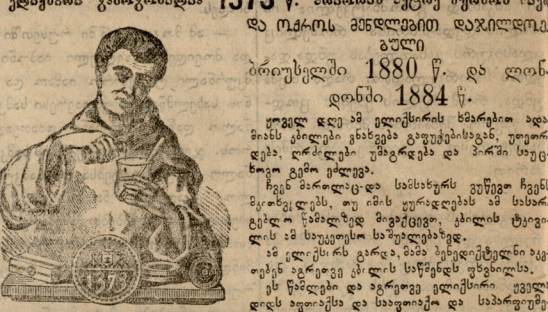 და ოქროს მენდლებით დაჯილდოე
ბული
ბრიუსელში 1880 წ. და ლონ-
დონში 1884 წ.
ყოველ დღე ამ ელიქსირის ხმარებით ადა-
მიანს კბილები ენახვება გაფუჭებისაგან, უთეთრ
დება, ღრძილები უმაგრდება და პირში საუც
ხოვო გემო ეძლევა.
ჩვენ მართლაც-და სამსახურს ვუწევთ ჩვენს
მკითხველებს, თუ იმის ყურადღებას ამ სასარ
გებლო წამალზედ მივაქცევთ, კბილის ტკივი
ლის ამ საუკეთესო საშუალებაზედ.
ამ ელიქსირს გარდა, მამა ბენედიქტელნი აკე
თებენ აგრეთვე კბილის საწმენდს ფხვნილსა.
ეს წამლები და აგრეთვე ელიქსირი ყველა
დიდს აფთიაქსა და სააფთიაქო და საპარფიუმე